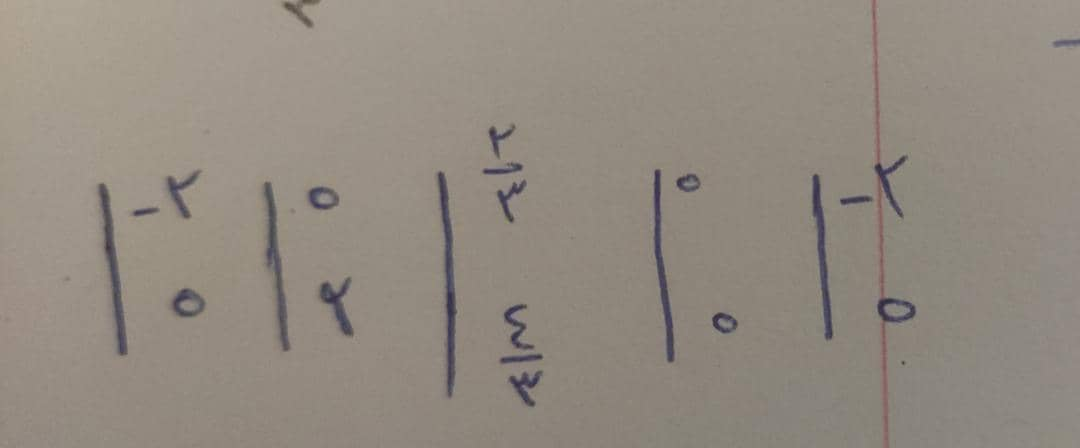 | -۲ | ۰ | ۲/۳ | ۰ | -۲
۰ ۲ ٤/۳ ۰ ۰